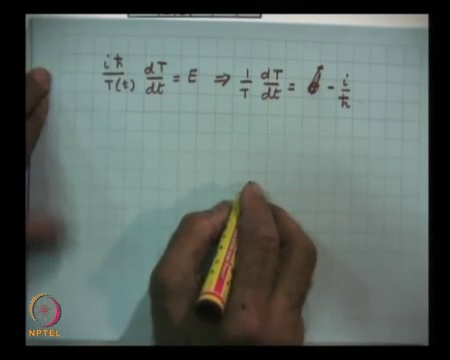 iℏ/T(t) dT/dt = E ⇒ 1/T dT/dt = - i/ℏ
NPTEL